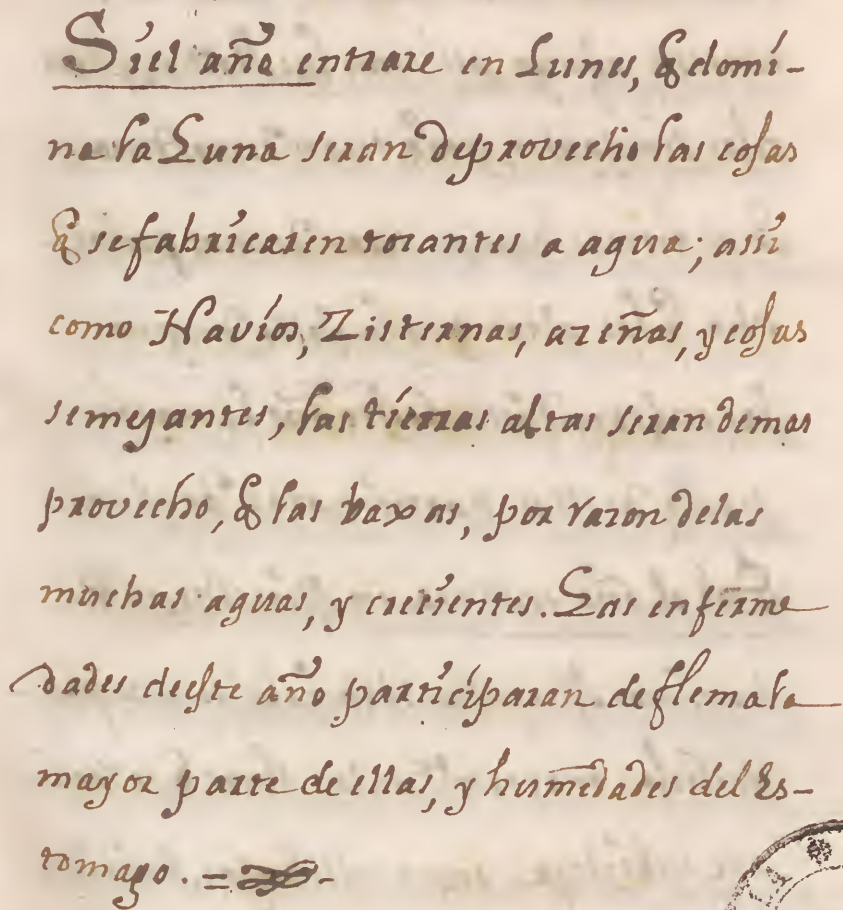 Siel año entrare en Lunes, q̃ domi-
na la Luna seran deprovecho las cosas
q̃ sefabricaren tocantes a agua; assi
como Navíos, Zisternas, azeñas, y cosas
semejantes, las tierras altas seran demas
provecho, q̃ las baxas, por razon delas
muchas aguas, y crecientes. Las enferme
dades deeste año participaran de flema la
mayor parte de ellas, y humedades del Es-
tomago. =